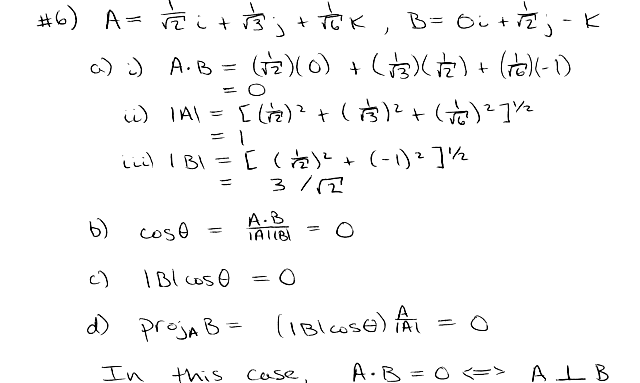 #6) A = 1/√2 i + 1/√3 j + 1/√6 K , B = 0i + 1/√2 j - K
a) i) A·B = (1/√2)(0) + (1/√3)(1/√2) + (1/√6)(-1)
= 0
ii) |A| = [ (1/√2)² + (1/√3)² + (1/√6)² ]^1/2
= 1
iii) |B| = [ (1/√2)² + (-1)² ]^1/2
= 3 /√2
b) cosθ = A·B / |A||B| = 0
c) |B|cosθ = 0
d) proj_A B = (|B|cosθ) A/|A| = 0
In this case, A·B = 0 <=> A ⊥ B